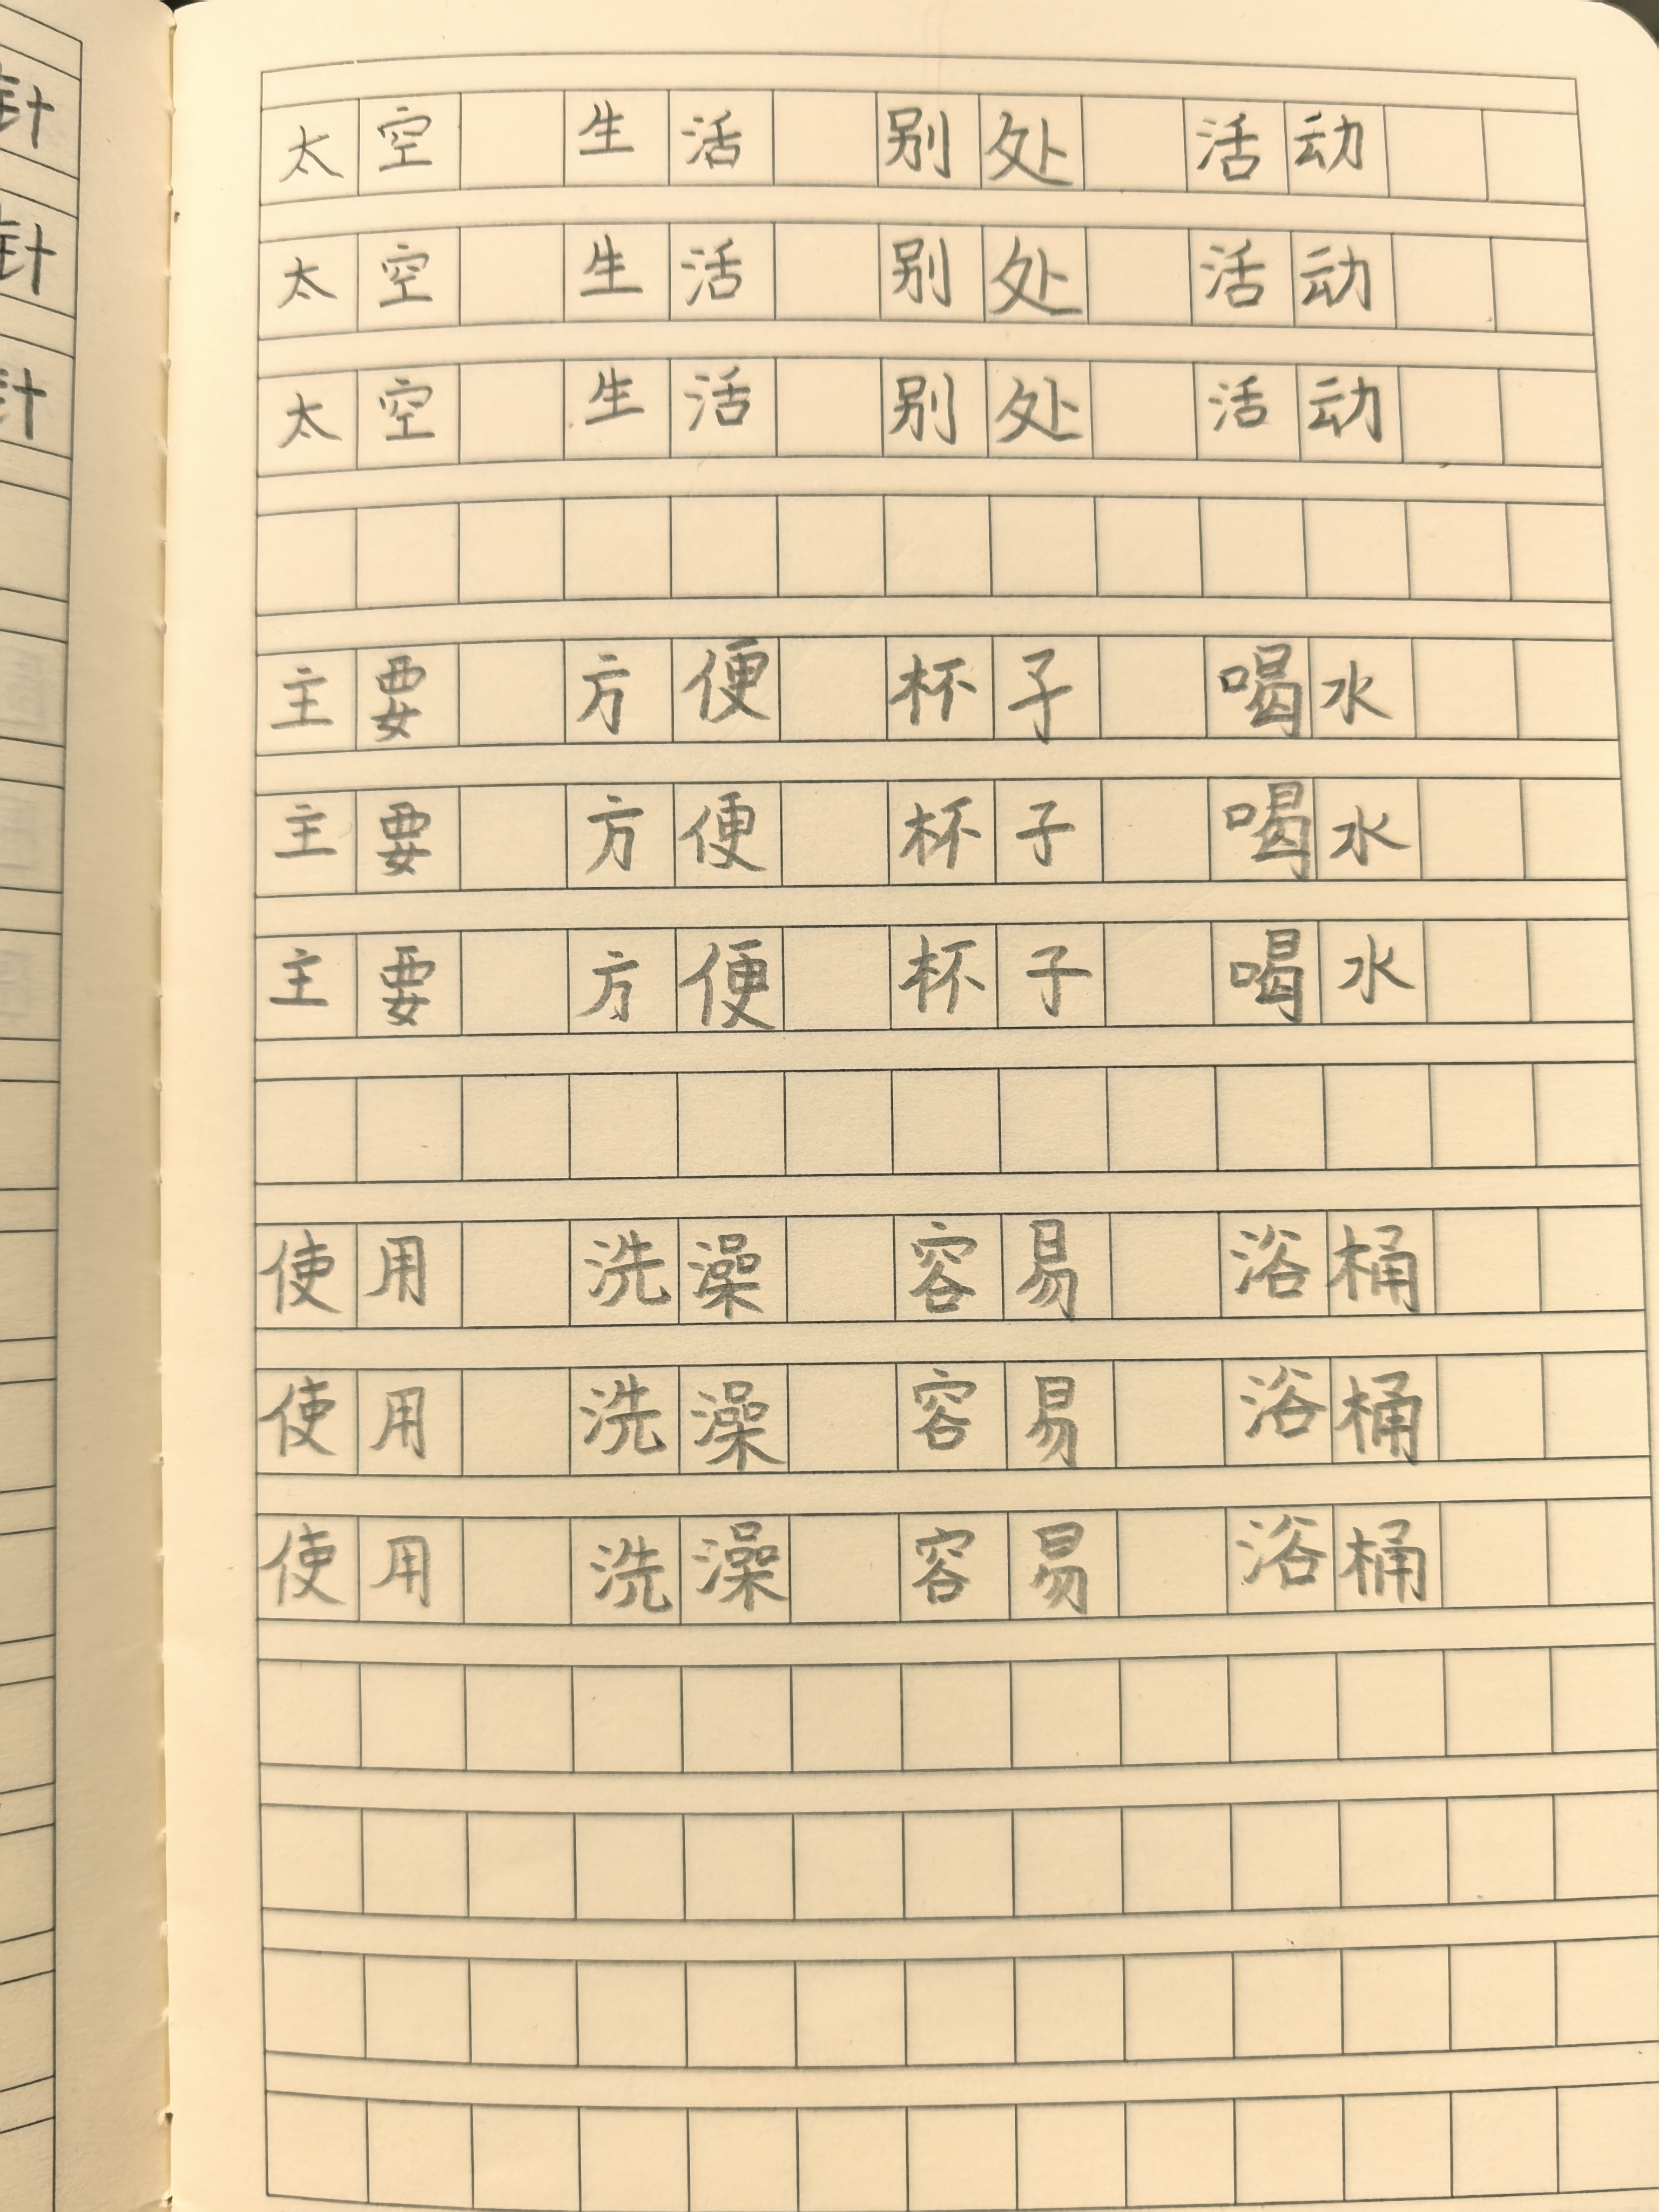 针
针
针
太空 生活 别处 活动
太空 生活 别处 活动
太空 生活 别处 活动
主要 方便 杯子 喝水
主要 方便 杯子 喝水
主要 方便 杯子 喝水
使用 洗澡 容易 浴桶
使用 洗澡 容易 浴桶
使用 洗澡 容易 浴桶